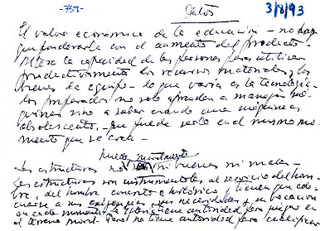 -759-
Datos
3/8/93
El valor económico de la educación - no hay
que ponderarla con el aumento del producto.
la capacidad de las personas para utilizar
productivamente los recursos materiales y los
bienes de equipo - lo que varía es la tecnología
los preparados no solo aprenden a manejar má-
quinas sino a saber cuando una máquina es
obsolescente, que puede serlo en el mismo mo-
mento que se crea -
Las estructuras no son ni buenas ni malas -
Las estructuras son instrumentales al servicio del hom-
bre, del hombre concreto e histórico y tienen que ade-
cuarse a sus exigencias, sus necesidades y su vocación
en cada momento. La Iglesia tiene autoridad para juzgar en
el terreno moral. Pero no tiene autoridad para